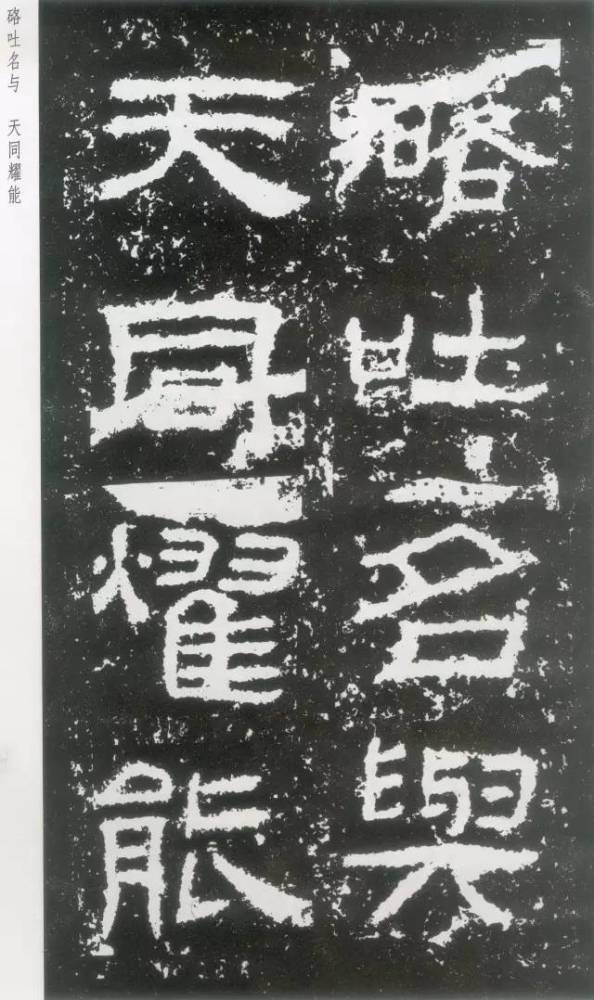 硌吐名與
天同燿能
硌吐名与　天同耀能